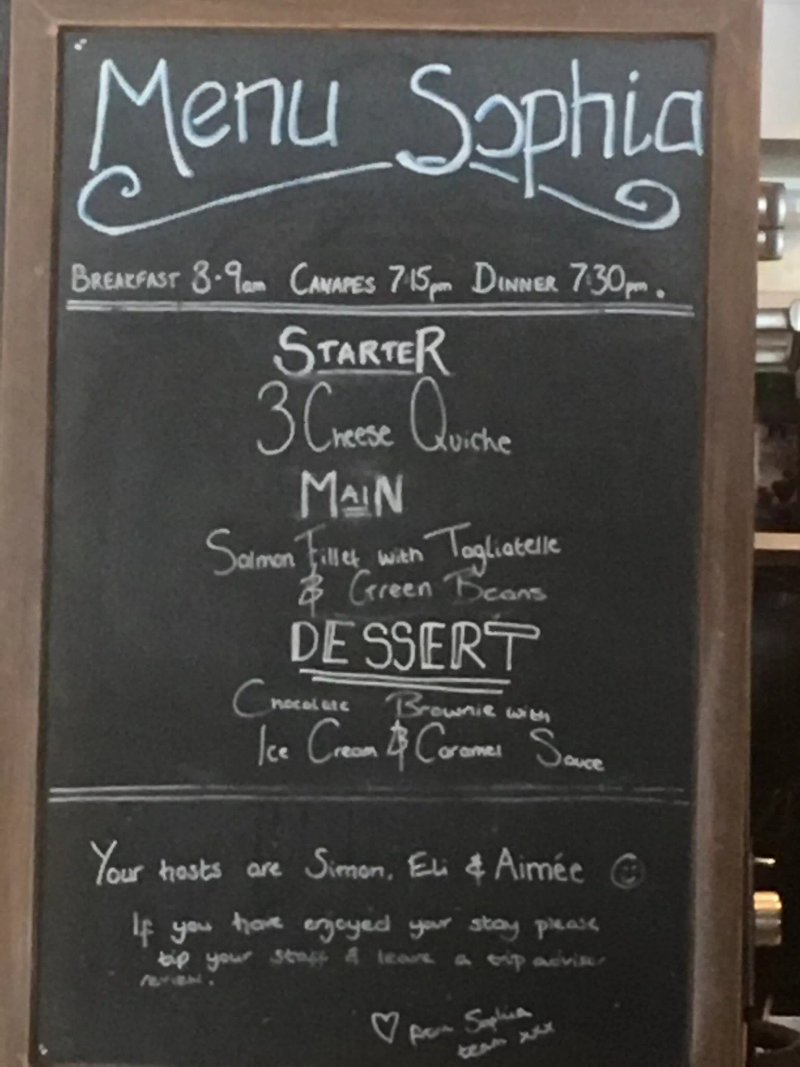 Menu Sophia
BREAKFAST 8-9am CANAPES 7:15pm DINNER 7:30pm.
STARTER
3 CHEESE QUICHE
MAIN
Salmon Fillet with Tagliatelle
& Green Beans
DESSERT
Chocolate Brownie with
Ice Cream & Caramel Sauce
Your hosts are Simon, Eli & Aimée
If you have enjoyed your stay please
tip your staff & leave a trip adviser
review.
from Sophia
team xxx